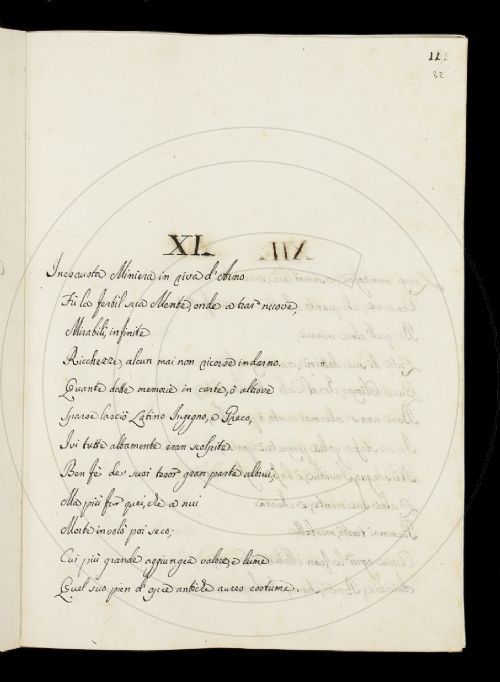 11.
82
XI.
Inesausta Miniera in riva d'Arno
Fù la fertil sua Mente, onde a trar nuove,
Mirabili, infinite
Ricchezze, alcun mai non ricorse indarno.
Quante dotte memorie in carte, ò altrove
Sparse lasciò Latino Ingegno, e Greco,
Ivi tutte altamente eran scolpite.
Ben fè de' suoi tesor gran parte altrui;
Ma più fur quei, che a nui
Morte involò poi seco;
Cui più grande aggiungea valore, e lume
Quel suo pien d' auree antiche aureo costume.